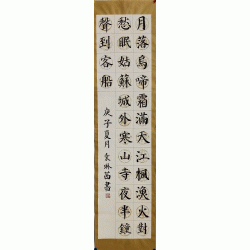 月落烏啼霜滿天江楓漁火對
愁眠姑蘇城外寒山寺夜半鐘
聲到客船
庚子夏月袁琳茜書